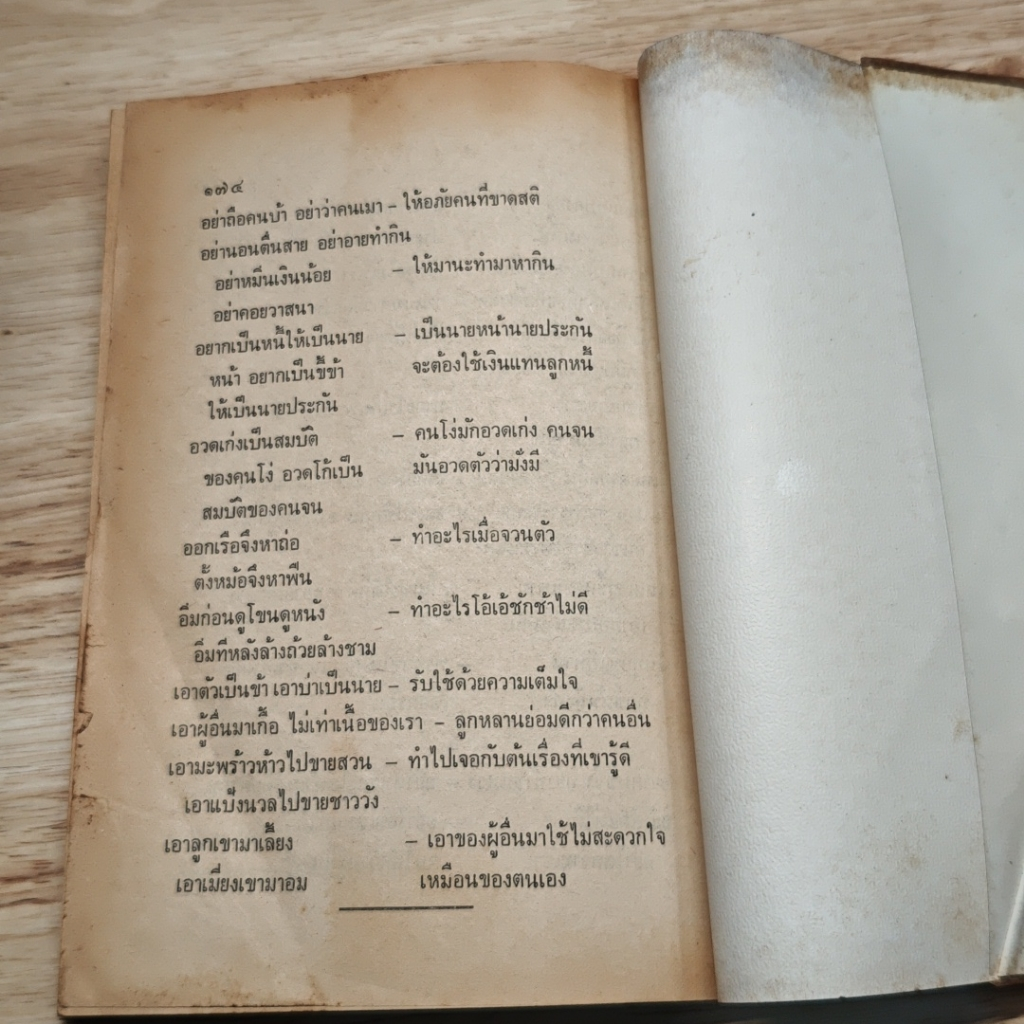 ๑๗๔
อย่าถือคนบ้า อย่าว่าคนเมา – ให้อภัยคนที่ขาดสติ
อย่านอนตื่นสาย อย่าอายทำกิน
อย่าหมิ่นเงินน้อย – ให้มานะทำมาหากิน
อย่าคอยวาสนา
อยากเป็นหนี้ให้เป็นนาย – เป็นนายหน้านายประกัน
หน้า อยากเป็นขี้ข้า จะต้องใช้เงินแทนลูกหนี้
ให้เป็นนายประกัน
อวดเก่งเป็นสมบัติ – คนโง่มักอวดเก่ง คนจน
ของคนโง่ อวดโก้เป็น มันอวดตัวว่ามั่งมี
สมบัติของคนจน
ออกเรือจึงหาถ่อ – ทำอะไรเมื่อจวนตัว
ตั้งหม้อจึงหาฟืน
อิ่มก่อนดูโขนดูหนัง – ทำอะไรโอ้เอ้ชักช้าไม่ดี
อิ่มทีหลังล้างถ้วยล้างชาม
เอาตัวเป็นข้า เอาบ่าเป็นนาย – รับใช้ด้วยความเต็มใจ
เอาผู้อื่นมาเกื้อ ไม่เท่าเนื้อของเรา – ลูกหลานย่อมดีกว่าคนอื่น
เอามะพร้าวห้าวไปขายสวน – ทำไปเจอกับต้นเรื่องที่เขารู้ดี
เอาแป้งนวลไปขายชาววัง
เอาลูกเขามาเลี้ยง – เอาของผู้อื่นมาใช้ไม่สะดวกใจ
เอาเมี่ยงเขามาอม เหมือนของตนเอง